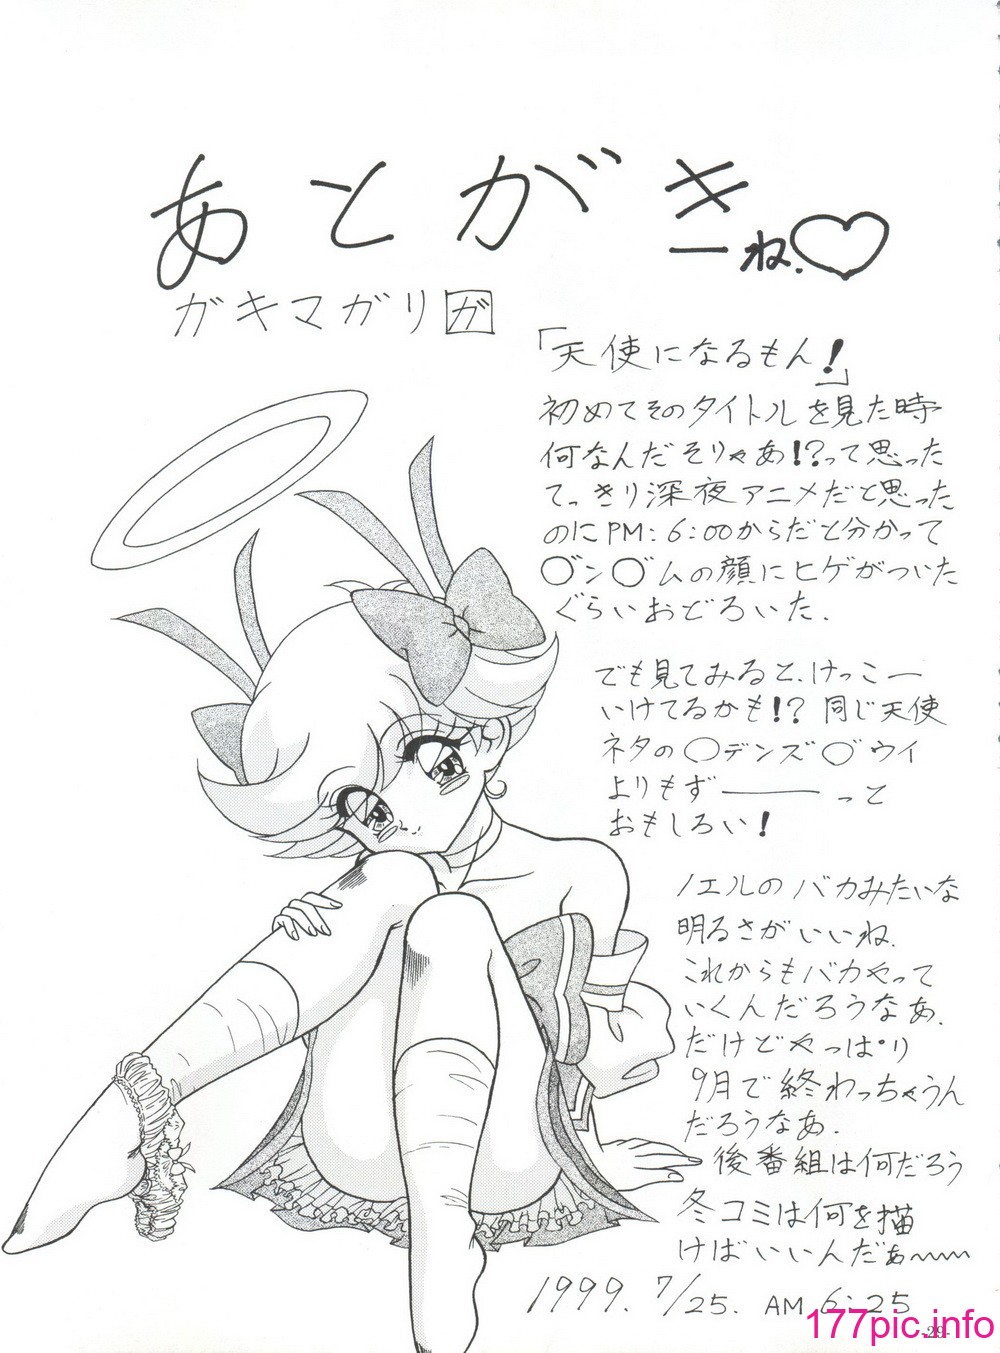 あとがきーね.♡
ガキマガリ ガ
「天使になるもん!」
初めてそのタイトルを見た時
何なんだそりゃあ!?って思った
てっきり深夜アニメだと思った
のにPM:6:00からだと分かって
〇"ン〇"ムの顔にヒゲがついた
ぐらいおどろいた.
でも見てみると、けっこー
いけてるかも!?同じ天使
ネタの〇デンズ〇"ウイ
よりもずーーっと
おもしろい!
ノエルのバカみたいな
明るさがいいね.
これからもバカやって
いくんだろうなぁ.
だけどやっぱり
9月で終わっちゃうん
だろうなあ.
後番組は何だろう
冬コミは何を描
けばいいんだぁ〜〜
1999. 7/25. AM 6:25
177pic.info
-29-